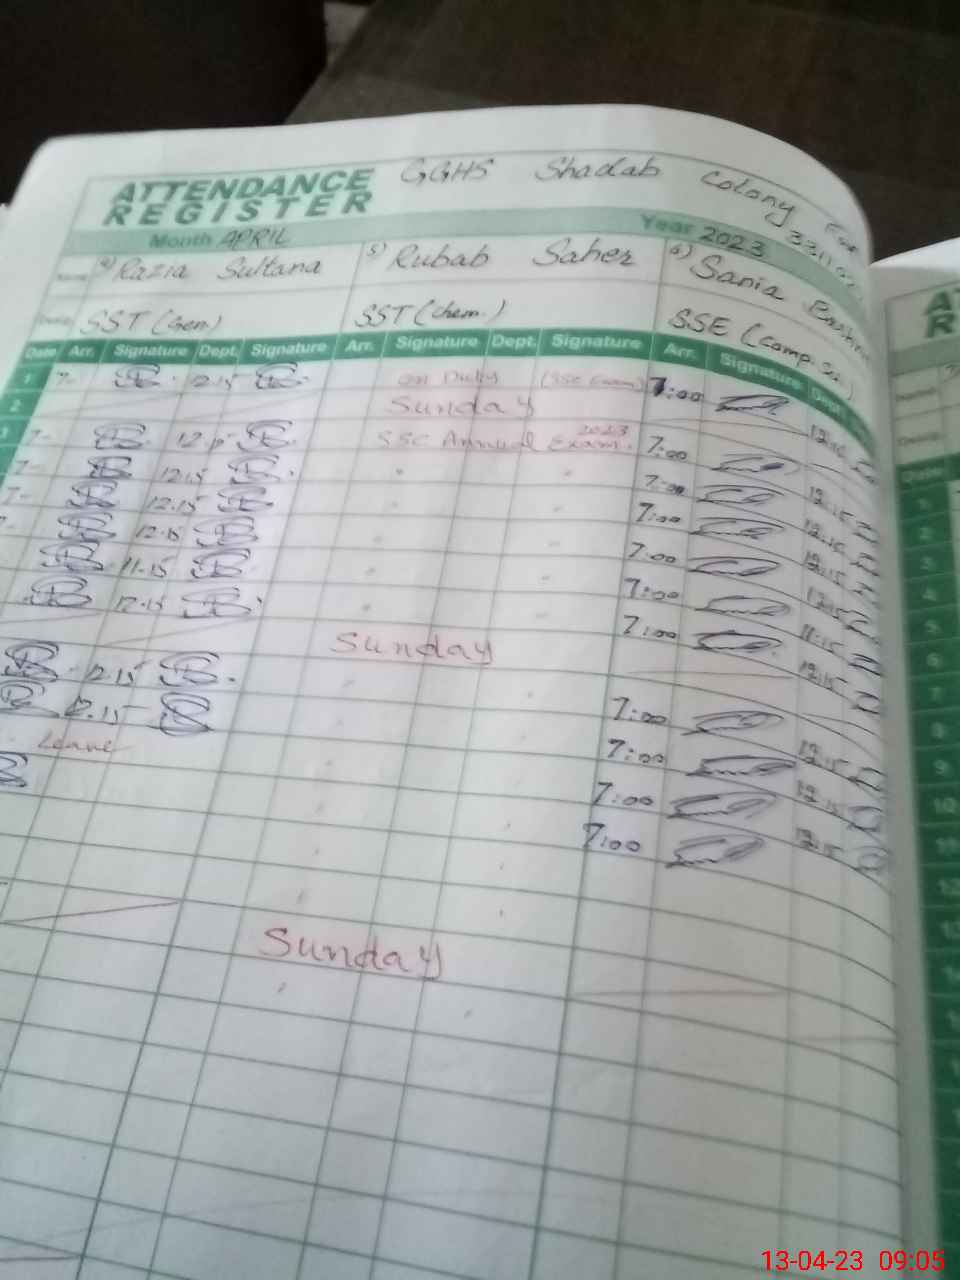 ATTENDANCE REGISTER GGHS Shadab Colony
Month APRIL Year 2023
4) Razia Sultana 5) Rubab Saher 6) Sania
SST (Gen) SST (Chem.) SSE (Comp. Sci)
Date Arr. Signature Dept. Signature Arr. Signature Dept. Signature Arr. Signature Dept.
1 7- 12.15 On Duty (SSC Exam) 7:00 12:15
2 Sunday
3 7- 12.15 SSC Annual Exam. 2023 7:00 12:15
7- 12.15 7:00 12:15
7- 12.15 7:00 12:15
12.15 7:00 12:15
11.15 7:00 11:15
12.15 7:00 12:15
Sunday
12.15 7:00 12:15
12.15 7:00 12:15
Leave 7:00 12:15
7:00
Sunday
Date
1
2
3
4
5
6
7
8
9
10
11
12
13-04-23 09:05